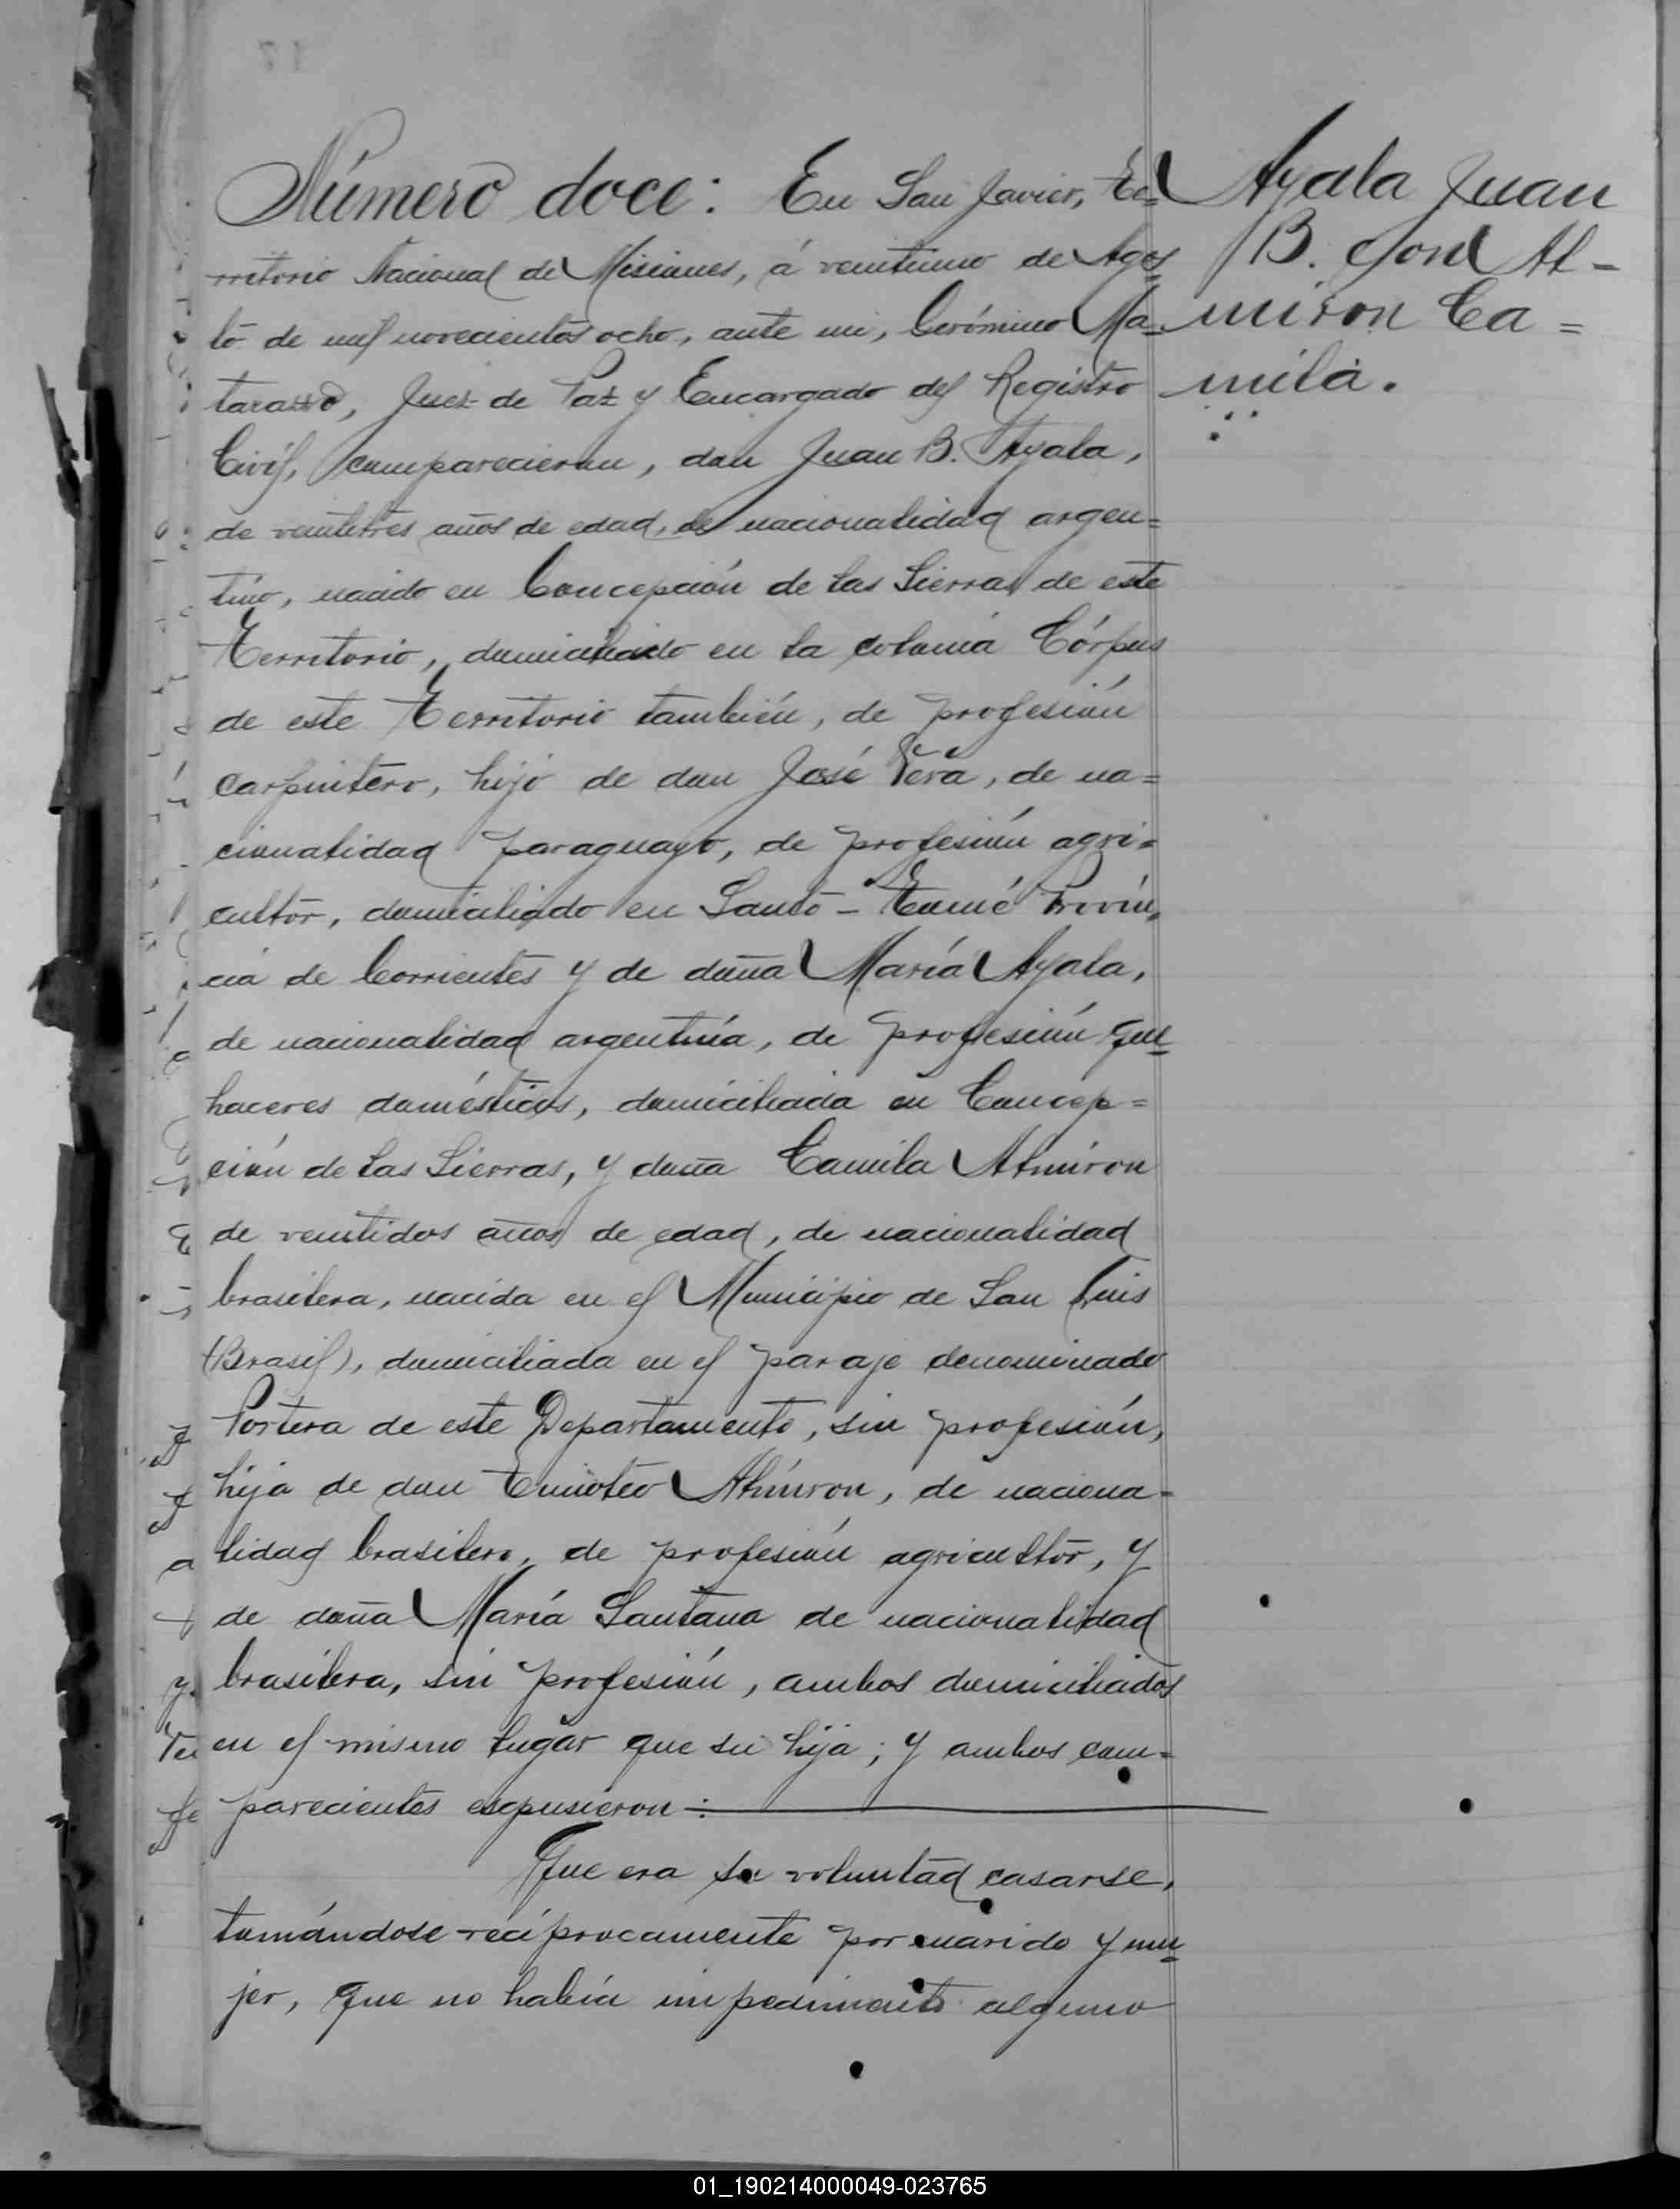 Número doce: En San Javier, Te=
rritorio Nacional de Misiones, á veintiuno de Agos
to de mil novecientos ocho, ante mi, Gerónimo Ma=
tarasso, Juez de Paz y Encargado del Registro
Civil, comparecieron, don Juan B. Ayala,
de veintitres años de edad, de nacionalidad argen=
tino, nacido en Concepción de las Sierras de este
Territorio, domiciliado en la colonia Córpus
de este Territorio también, de profesión
carpintero, hijo de don José Vera, de na=
cionalidad paraguayo, de profesión agri=
cultor, domiciliado en Santo-Tomé Provin=
cia de Corrientes y de doña María Ayala,
de nacionalidad argentina, de profesión que=
haceres domésticos, domiciliada en Concep=
ción de las Sierras, y doña Camila Almiron
de veintidos años de edad, de nacionalidad
brasilera, nacida en el Municipio de San Luis
(Brasil), domiciliada en el paraje denominado
Portera de este Departamento, sin profesión,
hija de don Timoteo Almiron, de naciona=
lidad brasilero, de profesión agricultor, y
de doña María Santana de nacionalidad
brasilera, sin profesión, ambos domiciliados
en el mismo lugar que su hija; y ambos com=
parecientes expusieron:
Que era su voluntad casarse,
tomándose recíprocamente por marido y mu=
jer, que no había impedimento alguno
Ayala Juan
B. con Al-
miron Ca=
mila.
01_190214000049-023765